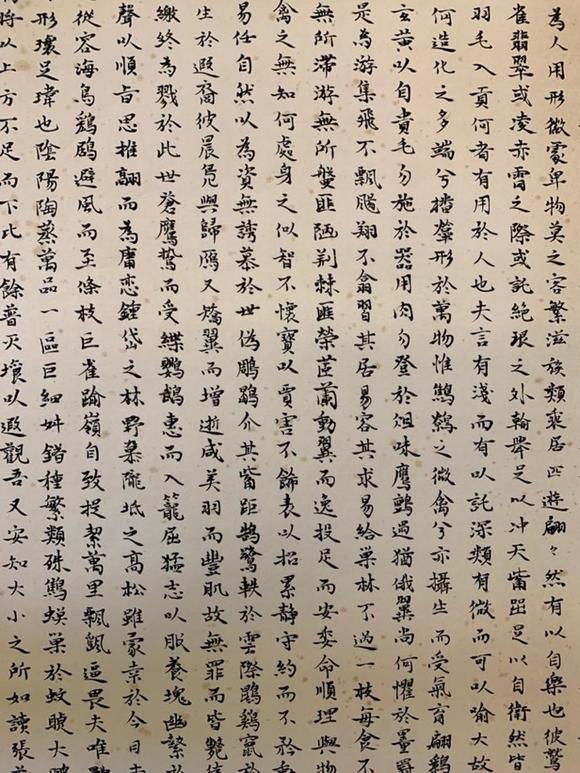 為人用形微處卑物莫之害繁滋族類乘居匹遊翩々然有以自樂也彼鷲
雀翡翠或凌赤霄之際或託絕垠之外翰舉足以冲天觜距足以自衛然皆
羽毛入貢何者有用於人也夫言有淺而有以託深類有微而可以喻大故
何造化之多端兮播群形於萬物惟鷦鷯之微禽兮亦攝生而受氣育翩
玄黃以自貴毛勿施於器用肉勿登於俎味鷹鸇過猶俄翼尚何懼於罿罻
是為游集飛不飄颺翔不翕習其居易容其求易給巢林不過一枝每食不
無所滯游無所盤匪陋荊棘匪榮茞蘭動翼而逸投足而安委命順理與物
禽之無知何處身之似智不懷寶以賈害不飾表以招累靜守約而不矜動
易任自然以為資無誘慕於世偽鵰鶡介其觜距鵠鷺軼於雲際鶤鷄竄於
生於遐裔彼晨鳧與歸雁又矯翼而增逝咸美羽而豐肌故無罪而皆斃徒
繳終為戮於此世蒼鷹鷙而受緤鸚鵡惠而入籠屈猛志以服養塊幽縶於
聲以順旨思摧翮而為庸戀鍾岱之林野慕隴坻之高松雖蒙幸於今日未
從容海鳥鶢鶋避風而至條枝巨雀踰嶺自致提挈萬里飄颻逼畏夫唯
形瓌足瑋也陰陽陶蒸萬品一區巨細舛錯種繁類殊鷦螟巢於蚊睫大鵬
將以上方不足而下比有餘普天壤以遐觀吾又安知大小之所如讀張